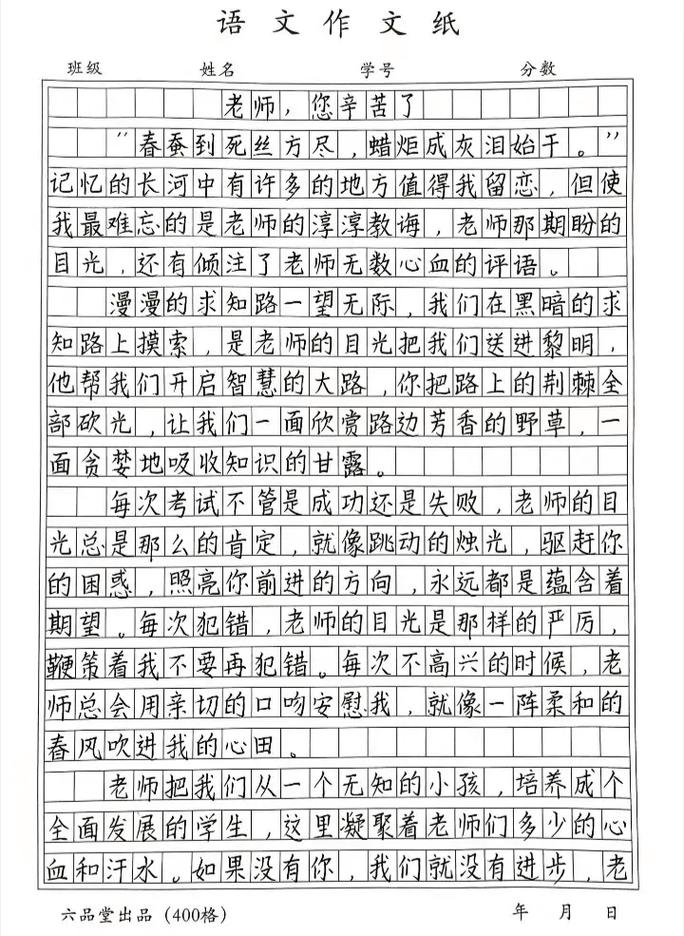 语文作文纸
班级 姓名 学号 分数
老师，您辛苦了
“春蚕到死丝方尽，蜡炬成灰泪始干。”
记忆的长河中有许多的地方值得我留恋，但使
我最难忘的是老师的淳淳教诲，老师那期盼的
目光，还有倾注了老师无数心血的评语。
漫漫的求知路一望无际，我们在黑暗的求
知路上摸索，是老师的目光把我们送进黎明，
他帮我们开启智慧的大路，你把路上的荆棘全
部砍光，让我们一面欣赏路边芳香的野草，一
面贪婪地吸收知识的甘露。
每次考试不管是成功还是失败，老师的目
光总是那么的肯定，就像跳动的烛光，驱赶你
的困惑，照亮你前进的方向，永远都是蕴含着
期望。每次犯错，老师的目光是那样的严厉，
鞭策着我不要再犯错。每次不高兴的时候，老
师总会用亲切的口吻安慰我，就像一阵柔和的
春风吹进我的心田。
老师把我们从一个无知的小孩，培养成个
全面发展的学生，这里凝聚着老师们多少的心
血和汗水。如果没有你，我们就没有进步，老
六品堂出品（400格） 年 月 日